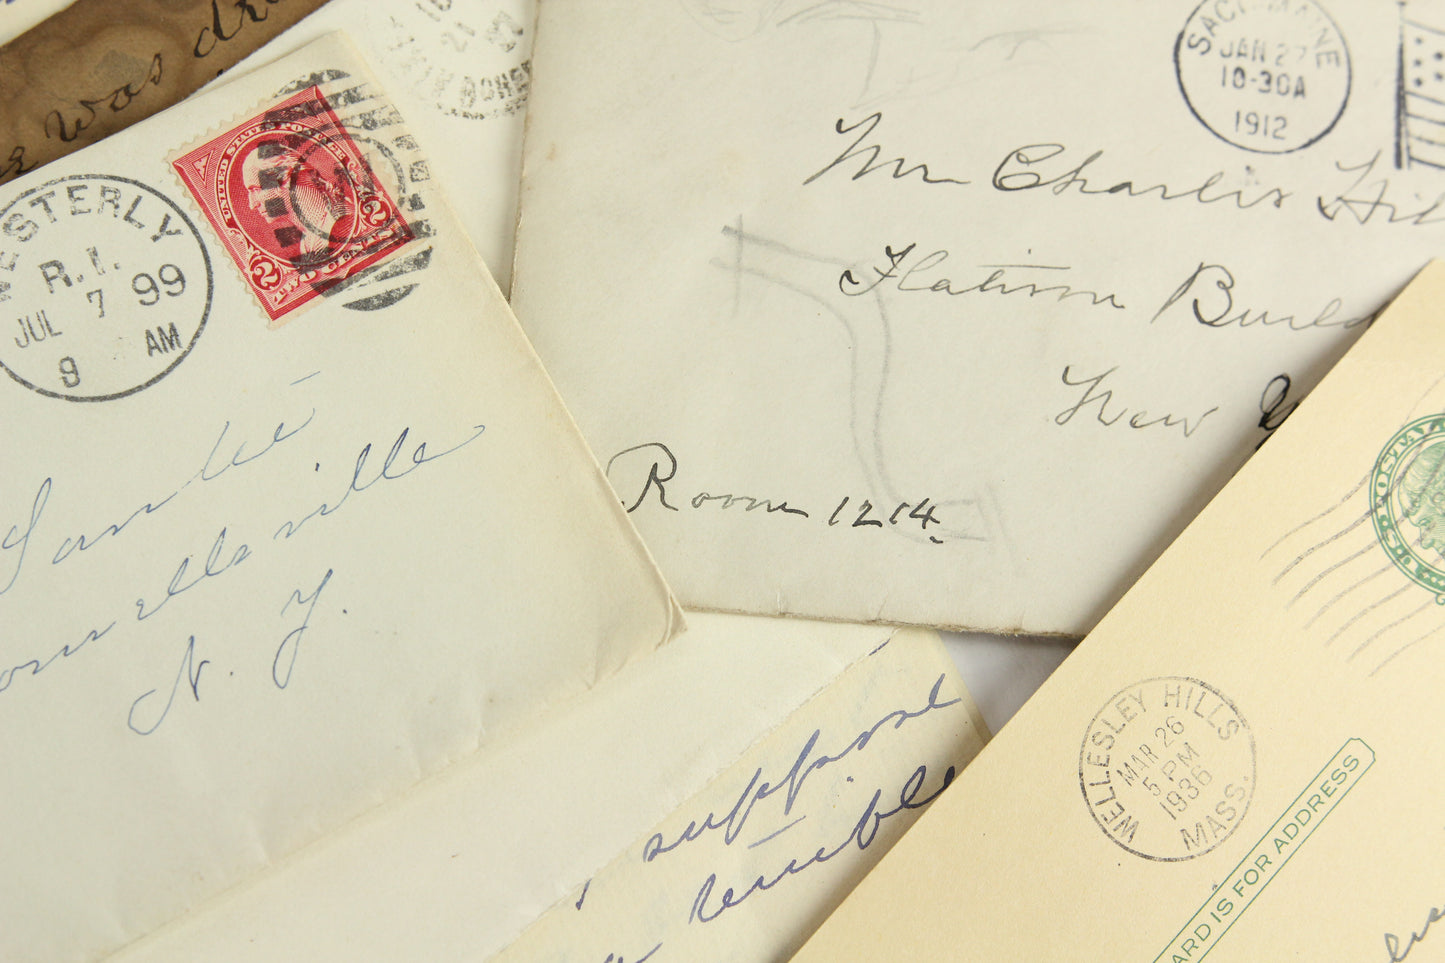 was
WESTERLY
R.I.
JUL 7 99
9 AM
UNITED STATES POSTAGE
2 2
TWO CENTS
ville
N. Y.
21
SACO, MAINE
JAN 27
10-30A
1912
Mr Charles Hil
Flatiron Build
New Y
Room 1214.
U.S. POSTA
WELLESLEY HILLS
MAR 26
5 PM
1936
MASS.
ARD IS FOR ADDRESS
I suppose